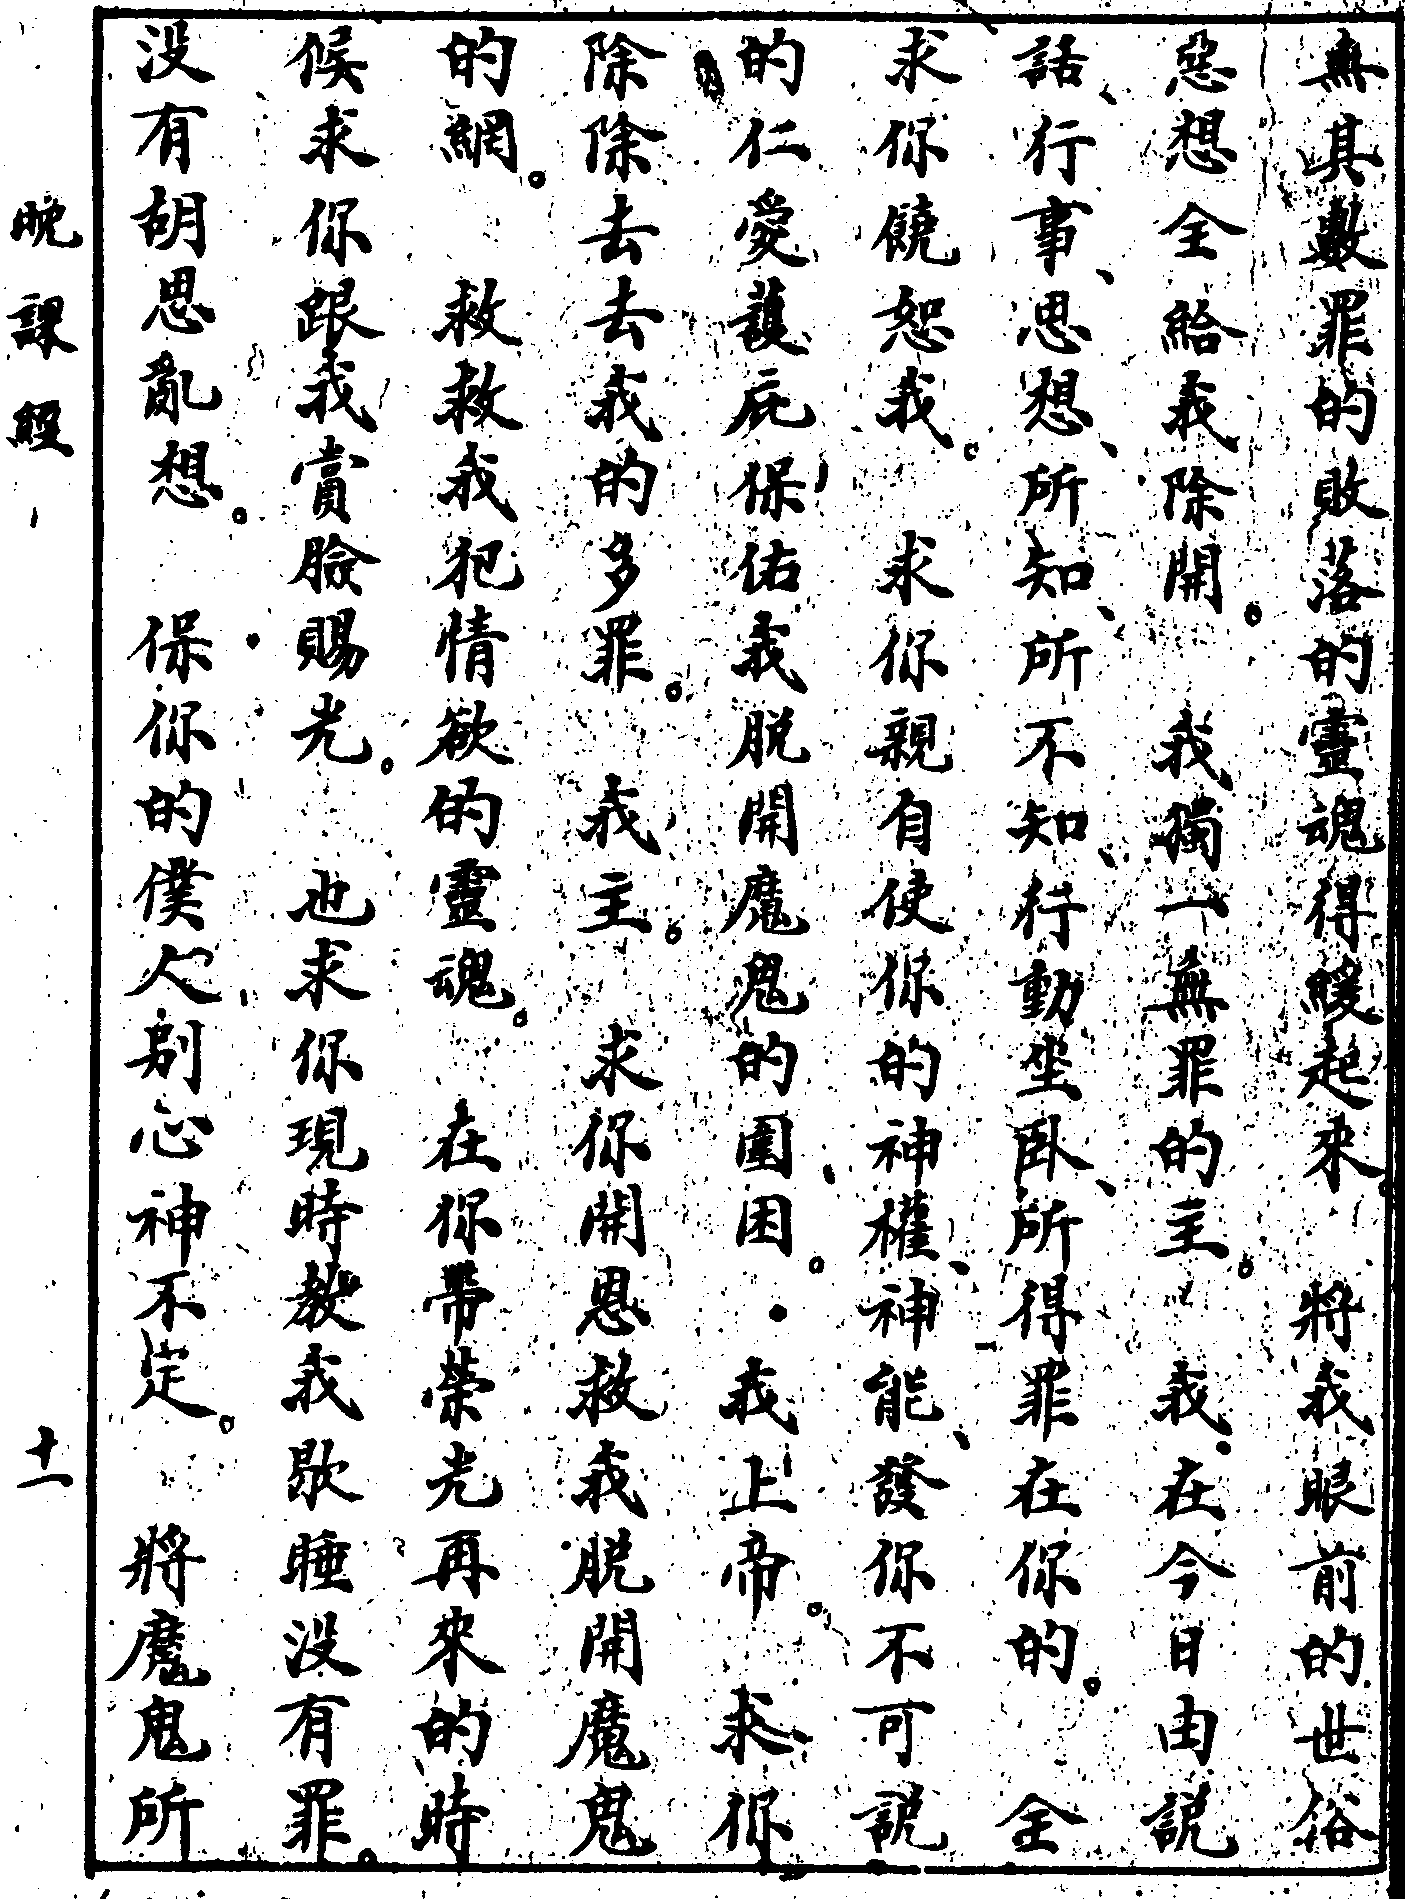 無其數罪的敗落的靈魂得緩起來 將我眼前的世俗
惡想全給我除開。 我獨一無罪的主。 我在今日由說
話、行事、思想、所知、所不知、行動坐臥、所得罪在你的。 全
求你饒恕我。 求你親自使你的神權、神能、發你不可說
的仁愛護庇保佑我脫開魔鬼的圍困。 我上帝。 求你
除除去去我的多罪。 我主。 求你開恩救我脫開魔鬼
的網。 救救我犯情欲的靈魂。 在你帶榮光再來的時
候求你跟我賞臉賜光。 也求你現時教我歇睡沒有罪。
沒有胡思亂想。 保你的僕人別心神不定。 將魔鬼所
晚課經
十一